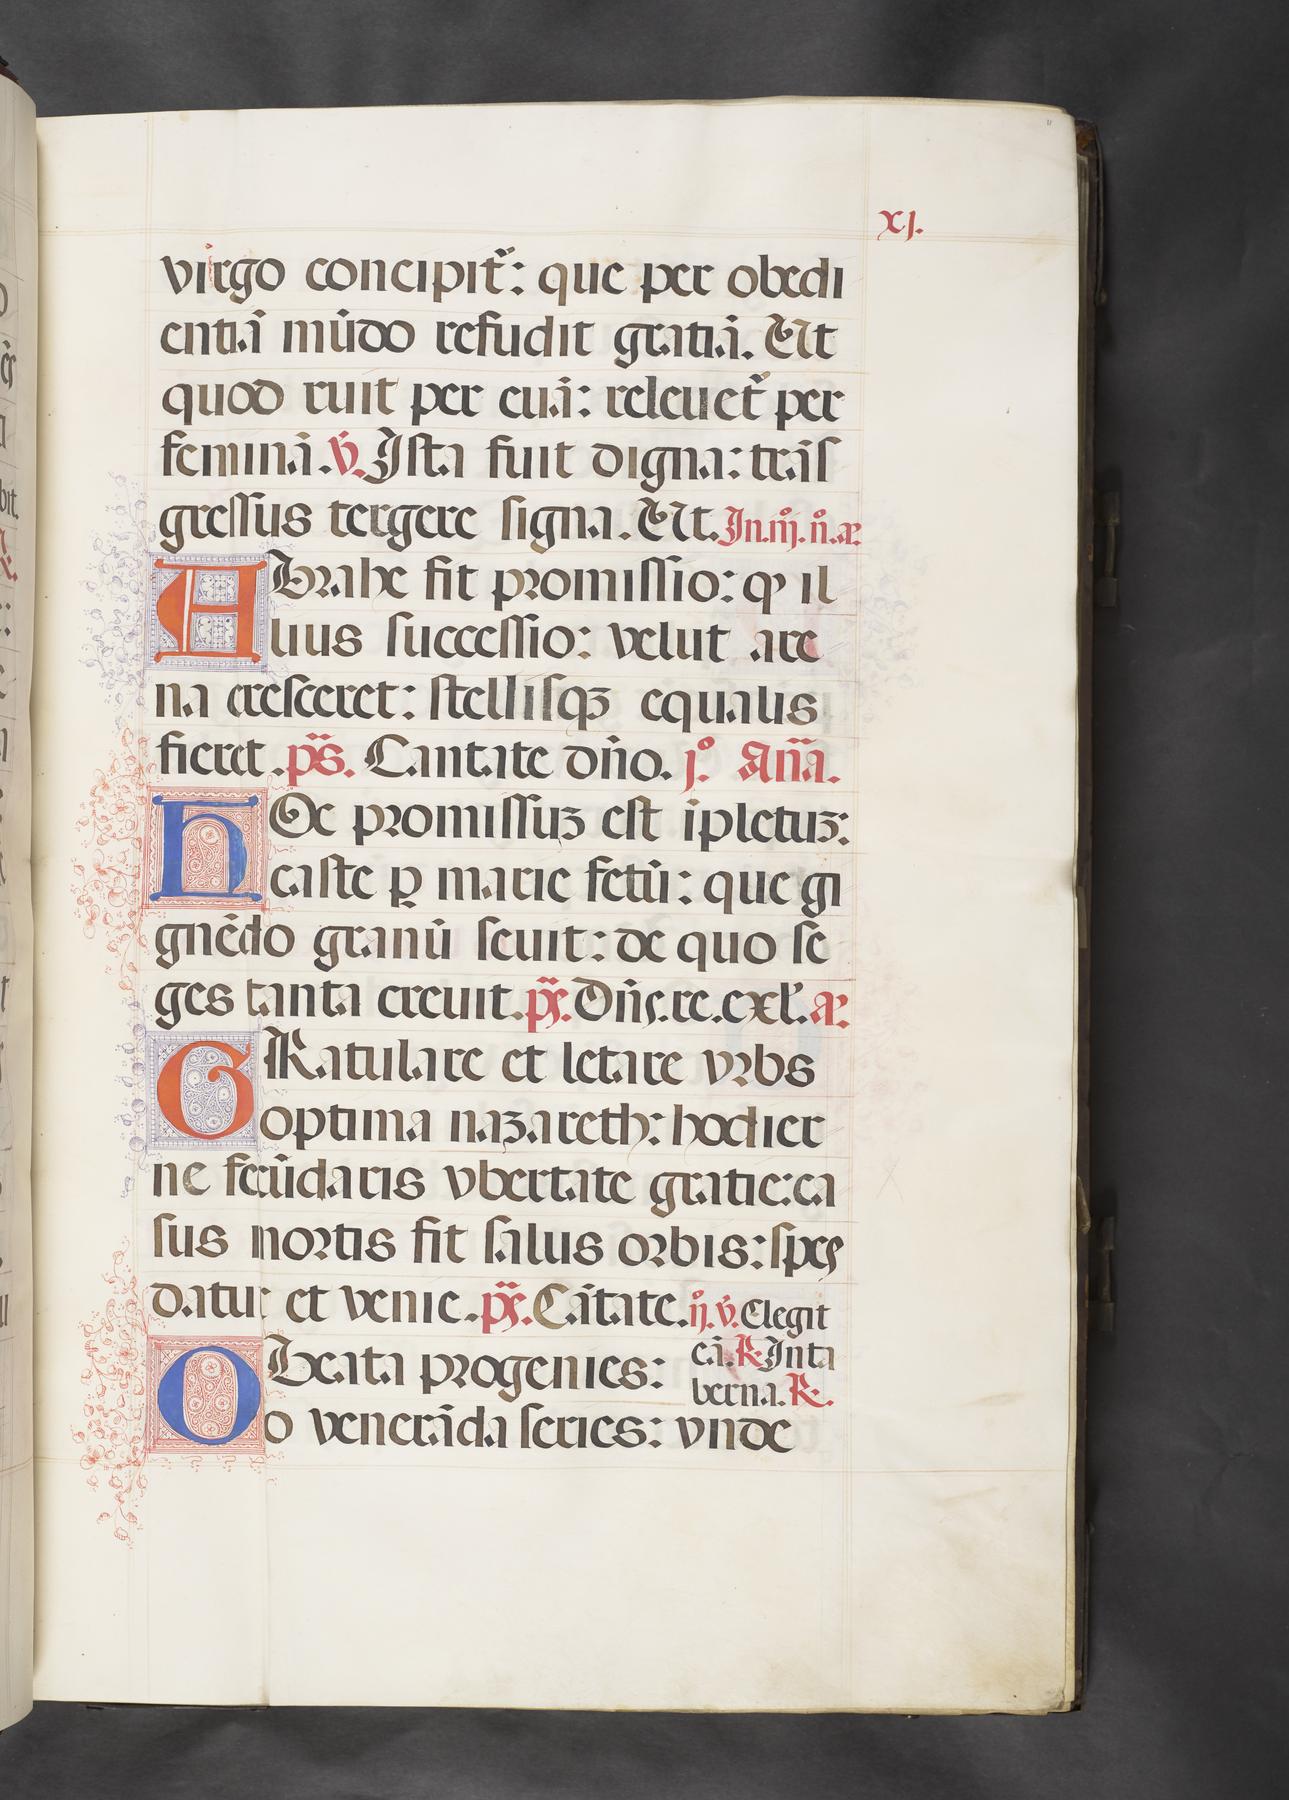 xj.
virgo concipit̃: que per obedi
entiã mũdo refudit gratiã. Ut
quod ruit per euã: releuet̃ per
feminã. ℣. Ista fuit digna: trãs
gressus tergere signa. Ut. In .iij. nͦ. aͬ.
ABrahe fit promissio: qꝫ il
lius successio: velut are
na cresceret: stellisqꝫ equalis
fieret. p̃s. Cantate dño. jͦ. Añã.
hOc promissuꝫ est ĩpletuꝫ:
caste ꝑ marie fetũ: que gi
gnẽdo granũ seuit: de quo se
ges tanta creuit. p̃s. Dñs. re. exl̃. aͬ.
GRatulare et letare vrbs
optima naꝫareth: hodier
ne fecũdaris vbertate gratie: ca
sus mortis fit salus orbis: spes
datur et venie. p̃s. Cãtate. ijͦ. ℣. Elegit
eã. ℟. In ta
berna. ℟.
OBeata progenies:
o venerãda series: vnde